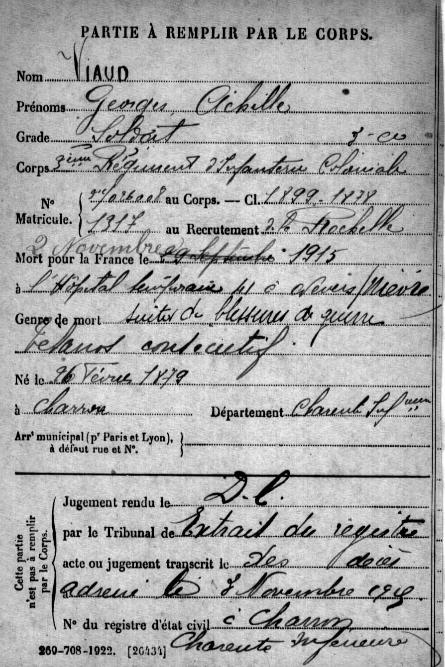 PARTIE À REMPLIR PAR LE CORPS.
Nom VIAUD
Prénoms Georges Achille
Grade Soldat
Corps 3ème Régiment d'Infanterie Coloniale
N° Matricule. au Corps. — Cl. 1899
1917 au Recrutement La Rochelle
2 Novembre
Mort pour la France le 1915
à l'Hôpital 41 à Nevers (Nièvre
Genre de mort suites de blessures de guerre
Tétanos consécutif
Né le 26 Février 1879
à Charron Département Charente Infre
Arrt municipal (pr Paris et Lyon),
à défaut rue et N°.
Cette partie n'est pas à remplir par le Corps.
Jugement rendu le D.C.
par le Tribunal de Extrait du registre
acte ou jugement transcrit le des décès
adressé le 7 Novembre 1915
N° du registre d'état civil à Charron
Charente Inférieure
269-708-1922. [26434]